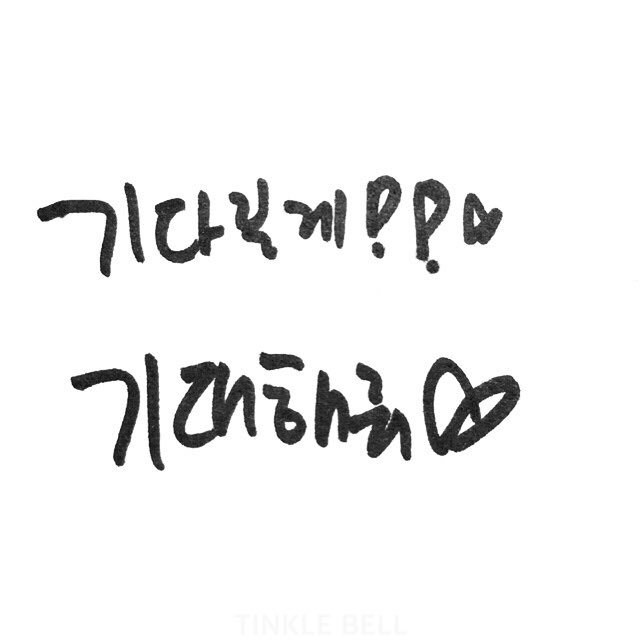 기다릴게??♡
기대해줘♡
TINKLE BELL